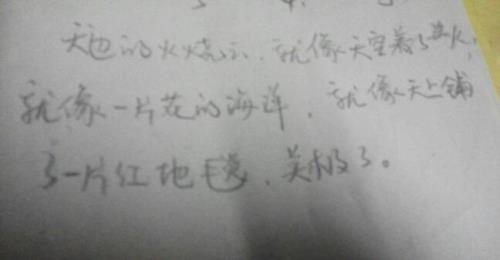 天边的火烧云，就像天空着了其火，
就像一片花的海洋，就像天上铺
了一片红地毯，美极了。